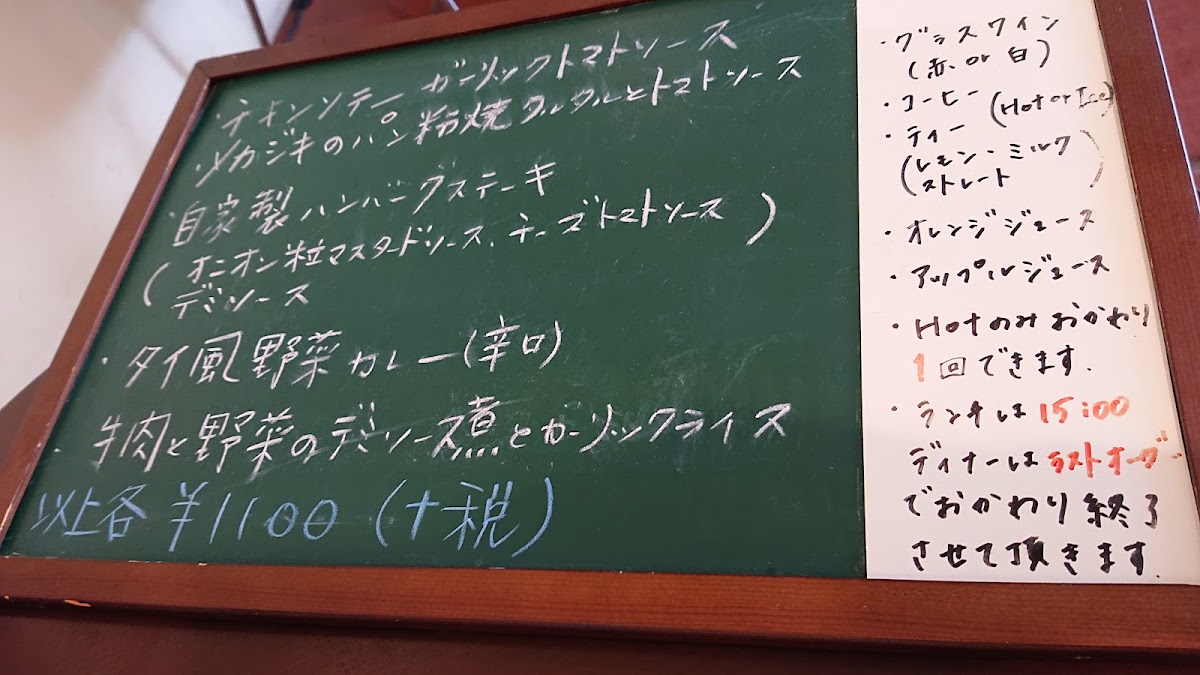 ・チキンソテー ガーリックトマトソース
・メカジキのパン粉焼タルタルとトマトソース
・自家製ハンバーグステーキ
(オニオン粒マスタードソース、チーズトマトソース)
デミソース
・タイ風野菜カレー(辛口)
・牛肉と野菜のデミソース煮とガーリックライス
以上各¥1100(+税)
・グラスワイン
(赤 or 白)
・コーヒー(Hot or Ice)
・ティー
(レモン・ミルク
ストレート)
・オレンジジュース
・アップルジュース
・Hotのみおかわり
1回できます.
・ランチは15:00
ディナーはラストオーダー
でおかわり終了
させて頂きます.